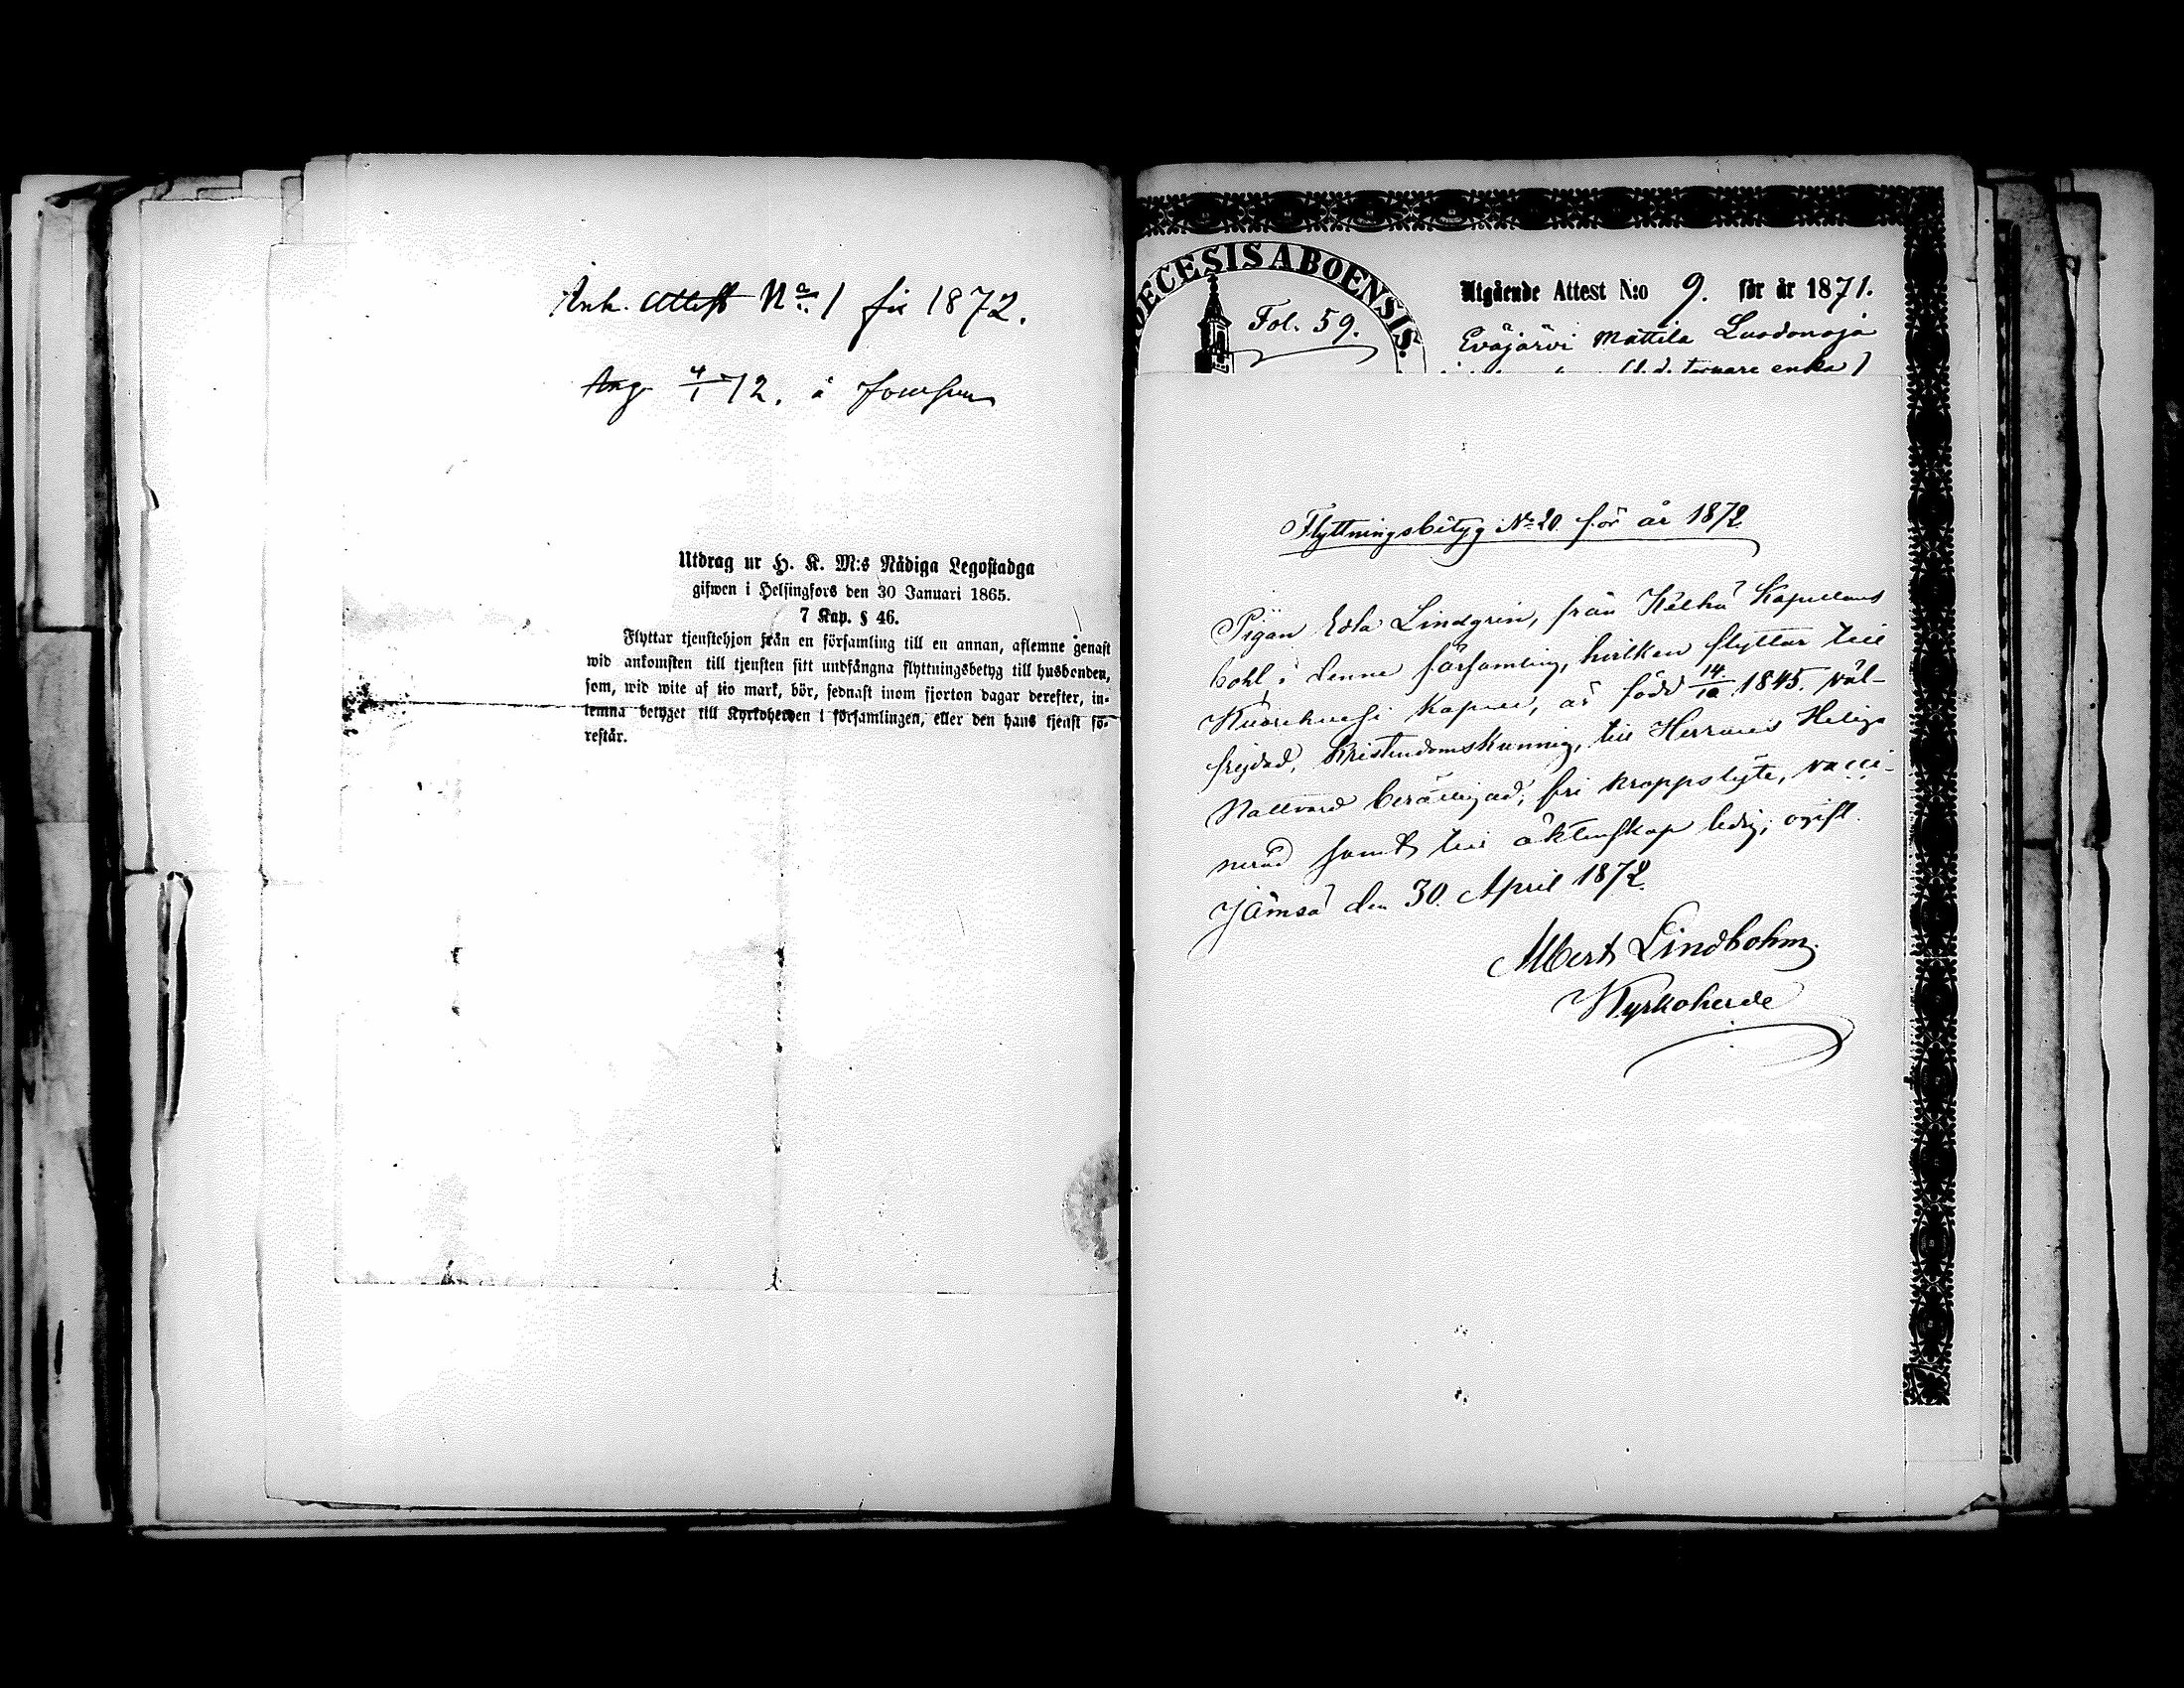 Ank. Attest No 1 för 1872.
Ang. 4/1 72. å
Utdrag ur H. K. M:s Nådiga Legostadga
gifwen i Helsingfors den 30 Januari 1865.
7 Kap. § 46.
Flyttar tjenstehjon från en församling till en annan, aflemne genast
wid ankomsten till tjensten sitt undfångna flyttningsbetyg till husbonden,
som, wid wite af tio mark, bör, sednast inom fjorton dagar derefter, in-
lemna betyget till Kyrkoherden i församlingen, eller den hans tjenst fö-
restår.
DECESIS ABOENSIS.
Fol. 59.
Utgående Attest N:o 9. för år 1871.
Eväjärvi Mattila
(f. d. enka)
Flyttningsbetyg No 20 för år 1872
Pigan Edla Lindgrin, från Kapellans
bohl i denna församling, hvilken flyttar till
Kuorehvesi Kapell, är född 14/10 1845. väl-
frejdad, Kristendomskunnig, till Herrans Heliga
Nattvard berättigad, fri kroppslyte, vacci-
nerad samt till äktenskap ledig, ogift.
Jämsä den 30. April 1872.
Albert Lindbohm
Kyrkoherde